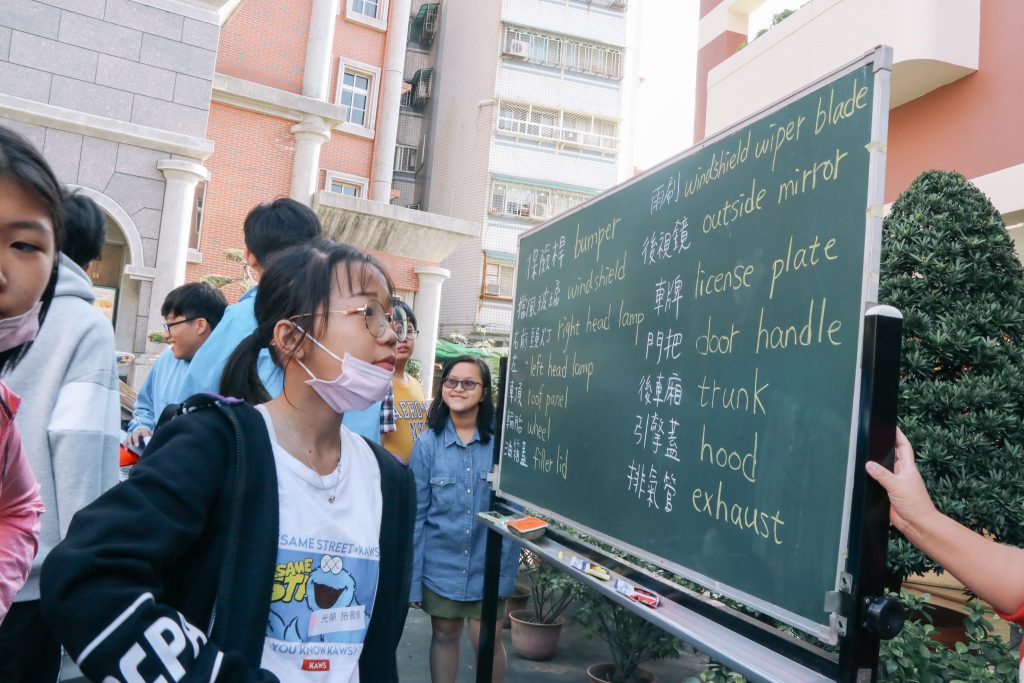 雨刷 windshield wiper blade
後視鏡 outside mirror
車牌 license plate
門把 door handle
後車廂 trunk
引擎蓋 hood
排氣管 exhaust
保險桿 bumper
擋風玻璃 windshield
右前頭灯 right head lamp
左 " left head lamp
車頂 roof panel
輪胎 wheel
油箱蓋 filler lid
SESAME STREET × KAWS
SESAME
ST
光榮 施佩
YOU KNOW KAWS?
KAWS
CCPA